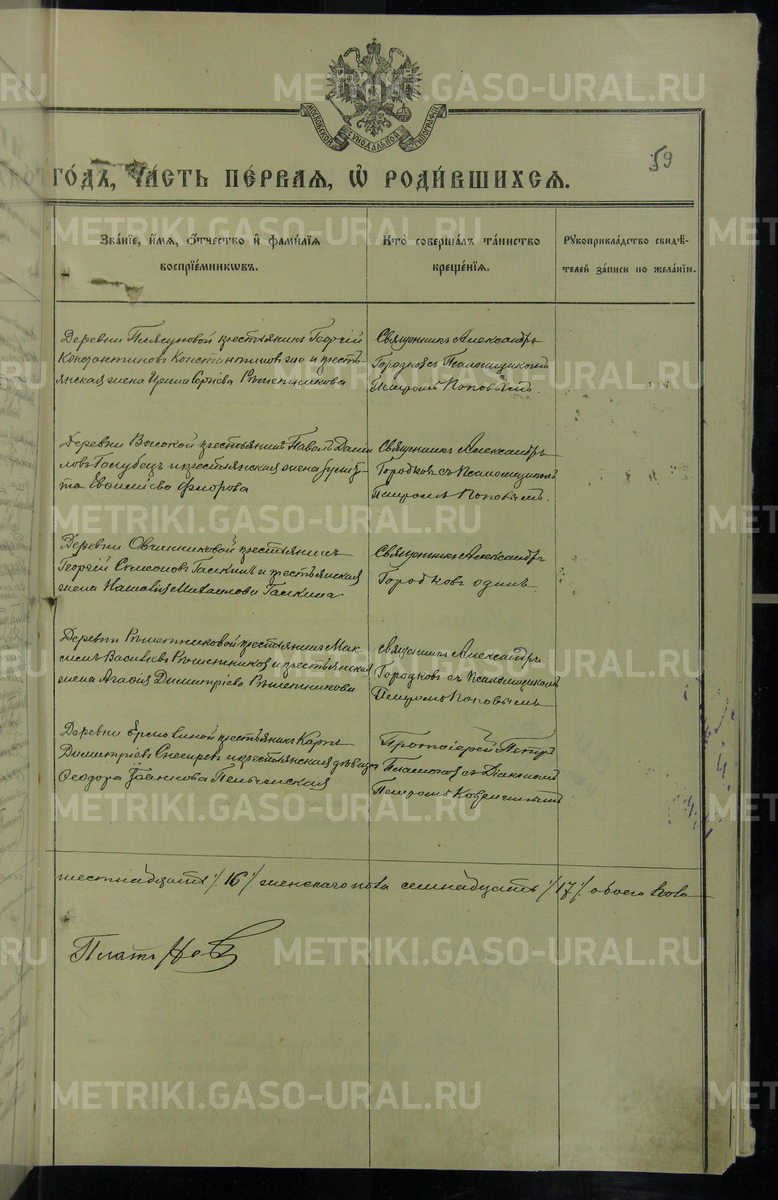 МОСКОВСКОЙ СѴНОДАЛЬНОЙ ТИПОГРАФІИ
59
ГО́ДЪ, ЧА́СТЬ ПЕ́РВАЯ, Ѡ҆ РОДИ́ВШИХСЯ.
Зва́нїе, и҆́мѧ, Ѻ҆́тчество и҆ фами́лїѧ
воспрїе́мникѡвъ.
Кто̀ соверша́лъ та́инство
креще́нїѧ.
Рꙋкоприкла́дство свидѣ́-
телей за́писи по жела́нїю.
Деревни крестьянинъ Георгій
Константиновъ и кресть-
янская жена Сергіева Рѣшетникова
Священникъ Александръ
Городковъ съ Псаломщикомъ
Петромъ Поповымъ.
Деревни Высокой крестьянинъ Павелъ Дани-
ловъ Голубецъ и крестьянская жена
Фролова
Священникъ Александръ
Городковъ съ Псаломщикомъ
Петромъ Поповымъ.
Деревни Овчинниковой крестьянинъ
Георгій Симеоновъ Галкинъ и крестьянская
жена Наталія Михаилова Галкина
Священникъ Александръ
Городковъ одинъ
Деревни Рѣшетниковой крестьянинъ Мак-
симъ Васильевъ Рѣшетниковъ и крестьянская
жена Агафія Димитріева Рѣшетникова
Священникъ Александръ
Городковъ съ Псаломщикомъ
Петромъ Поповымъ
Деревни крестьянинъ Карпъ
Димитріевъ Снегиревъ и крестьянская дѣвица
Феодора Іоаннова
Протоіерей Петръ
съ Діакономъ
Петромъ
шестнадцать /16/ женскаго пола семнадцать /17/ обоего пола
METRIKI.GASO-URAL.RU